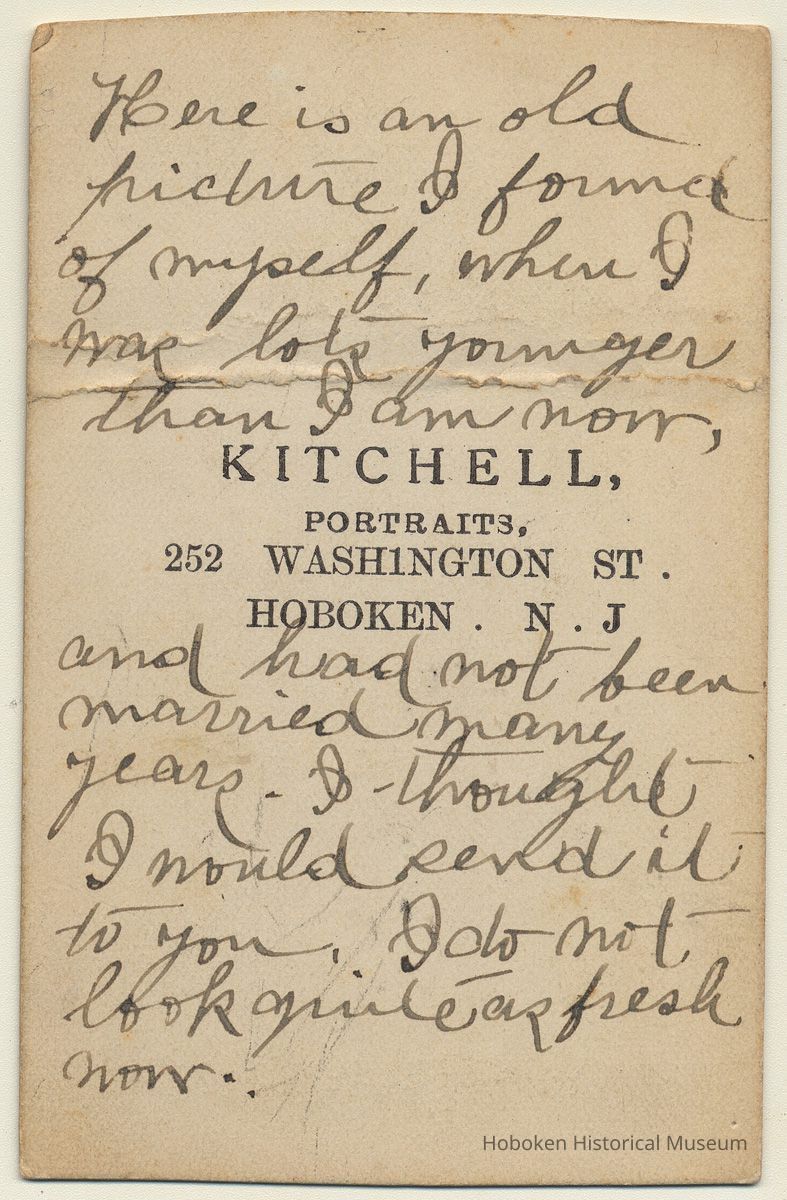 Here is an old
picture I found
of myself, when I
was lots younger
than I am now,
KITCHELL,
PORTRAITS,
252 WASH1NGTON ST.
HOBOKEN. N.J
and had not been
married many
years - I thought
I would send it
to you. I do not
look quite as fresh
now.
Hoboken Historical Museum